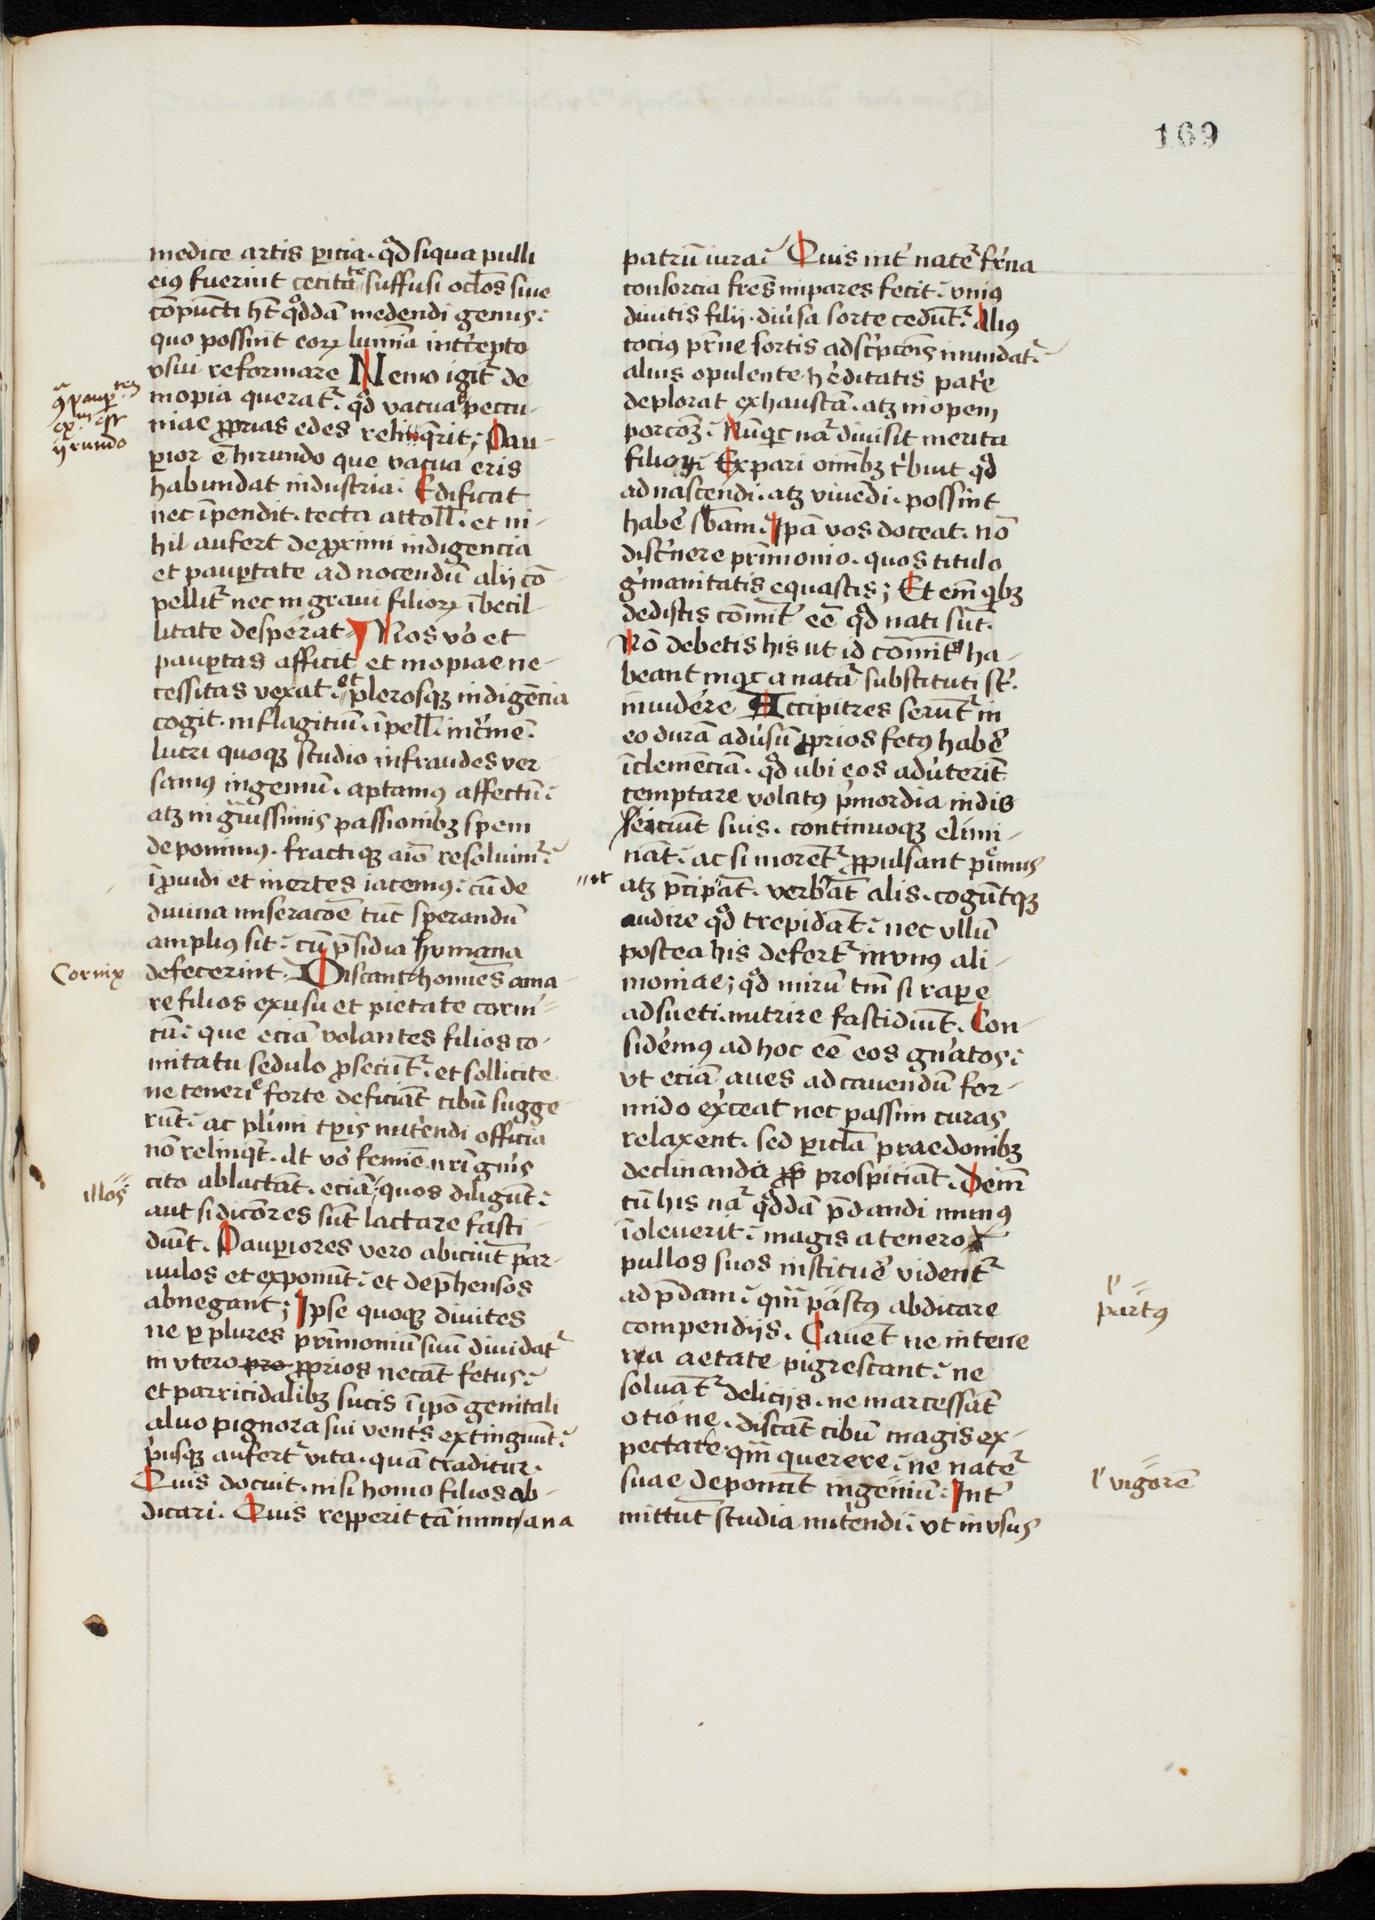 169
medice artis ꝑicia. qd̛ siqua pulli
eiꝯ fuerint cecitate suffusi oclōs siue
cōpūcti hn̄t qd̛dā medendi genus:
quo possint eoꝝ lumīa intercepto
vsui reformare Nemo igit̛ de
inopia querat̛. qd̛ vacua peccu-
niae ꝓprias edes reliq̄rit; Pau-
ꝑior ē hirundo que vacua eris
habundat industria. Edificat
nec īpendit. tecta attoll̛. et ni-
hil aufert de ꝓximi indigencia
et pauꝑtate ad nocendū alij cō-
pellit̛ nec in graui filioꝝ ībecil-
litate desperat Nos vơ et
pauꝑtas afficit et inopiae ne-
cessitas vexat. et plerosqꝫ indigēcia
cogit. in flagitiū. īpell̛. in c̛me.
lucri quoqꝫ studio in fraudes ver-
samꝯ ingeniū. aptamꝯ affectū:
atꝫ in g̛uissimis passionibꝫ spem
deponimꝯ. fractiqꝫ aīo resoluim̛.
īꝓuidi et inertes iacemꝯ: cū de
diuina miseracōe tūc sperandū
ampliꝯ sit. cū p̄sidia humana
defecerint. Discant hoīes ama-
re filios ex usu et pietate corni-
cū: que eciā volantes filios co-
mitatu sedulo ꝓsecūt̛. et sollicite
ne teneri forte deficiāt cibū sugge-
rūt. ac plīmi tꝑis nut̛endi officia
nō relinqūt. At vơ femīe nr̄i gn̄is
cito ablactāt. eciā quos diligūt:
aut si dicōres sūt lactare fasti-
diūt. Pauꝑiores vero abiciūt par-
uulos et exponūt. et dep̄hensos
abnegant; Ipse quoqꝫ diuites
ne ꝑ plures p̄rimoniū suū diuidat̛
in vtero pro ꝓprios necāt fetus:
et parricidalibꝫ sucis ī ipo̅ genitali
aluo pignora sui vent̛s extingūūt.
p̛usqꝫ aufert̛ vita. quā traditur.
Quis docuit. nisi homo filios ab-
dicari. Quis reꝑperit tā inmana
ꝯ paup̄tatem
exm̄ est
yrundo
Cornix
illos
patrū iura. Quis int̛ nat̛e fr̄na
consorcia fres̄ inpares fecit. vniꝯ
diuitis filij. diưsa sorte cedūt̛. Aliꝯ
tociꝯ pr̄ne sortis adsc̛pcōis inundat̛.
alius opulente he̛ditatis pat̛e
deplorat exhaustā. atꝫ inopem
porcōꝫ. Nūqc̛ na̛ diuisit merita
filioꝝ. Ex pari om̄ibꝫ t̛buit qd̛
ad nascendi. atꝫ viuendi. possint
habe̛ sb̄am. Ipā vos doceat. nō
disc̛nere pr̄imonio. quos titulo
g̛manitatis equastis; Et em̄ qbꝫ
dedistis cōmūt̛ eē qd̛ nati sūt.
Nō debetis his ut id cōmūt̛ ha-
beant in qc̛ a nat̛a substituti st̄.
inuidere Accipitres ferūt̛ in
eo durā adưsū ꝓprios fetꝯ habe̛
īclemēciā. qd̛ ubi eos adưterīt
temptare volatꝯ p̛mordia nidis
eiciūt suis. continuoqꝫ elimi-
nāt. ac si morent̛ ꝓpulsant pēnis
atꝫ p̄cipāt. verbāt alis. cogūtqꝫ
audire qd̛ trepidāt. nec vllū
postea his defert̛ munꝯ ali-
moniae; qd̛ mirū tn̄ si raꝑe
adsueti. nutrire fastidiūt. Con-
side̛mꝯ ad hoc eē eos gn̛atos:
vt eciā aues ad cauendū for-
mido ex̛ceat nec passim curas
relaxent. sed ꝑicl̄a praedonibꝫ
declinanda ꝓspiciāt. Deīn
cū his na̛ qd̛dā p̄dandi munꝯ
īoleuerit. magis a tenero
pullos suos institue̛ vident̛
ad p̄dam. qm̄ pastꝯ abdicare
compendijs. Cauēt ne in tene
ra aetate pigrescant. ne
soluāt̛ delicijs. ne marcessāt
otio ne. discāt cibū magis ex-
pectare. qm̄ querere. ne nat̛e
suae deponāt ingeniū. Int̛
mittūt studia nut̛endi. vt in vsus
ut
l̛
partꝯ
l̛ vigorē